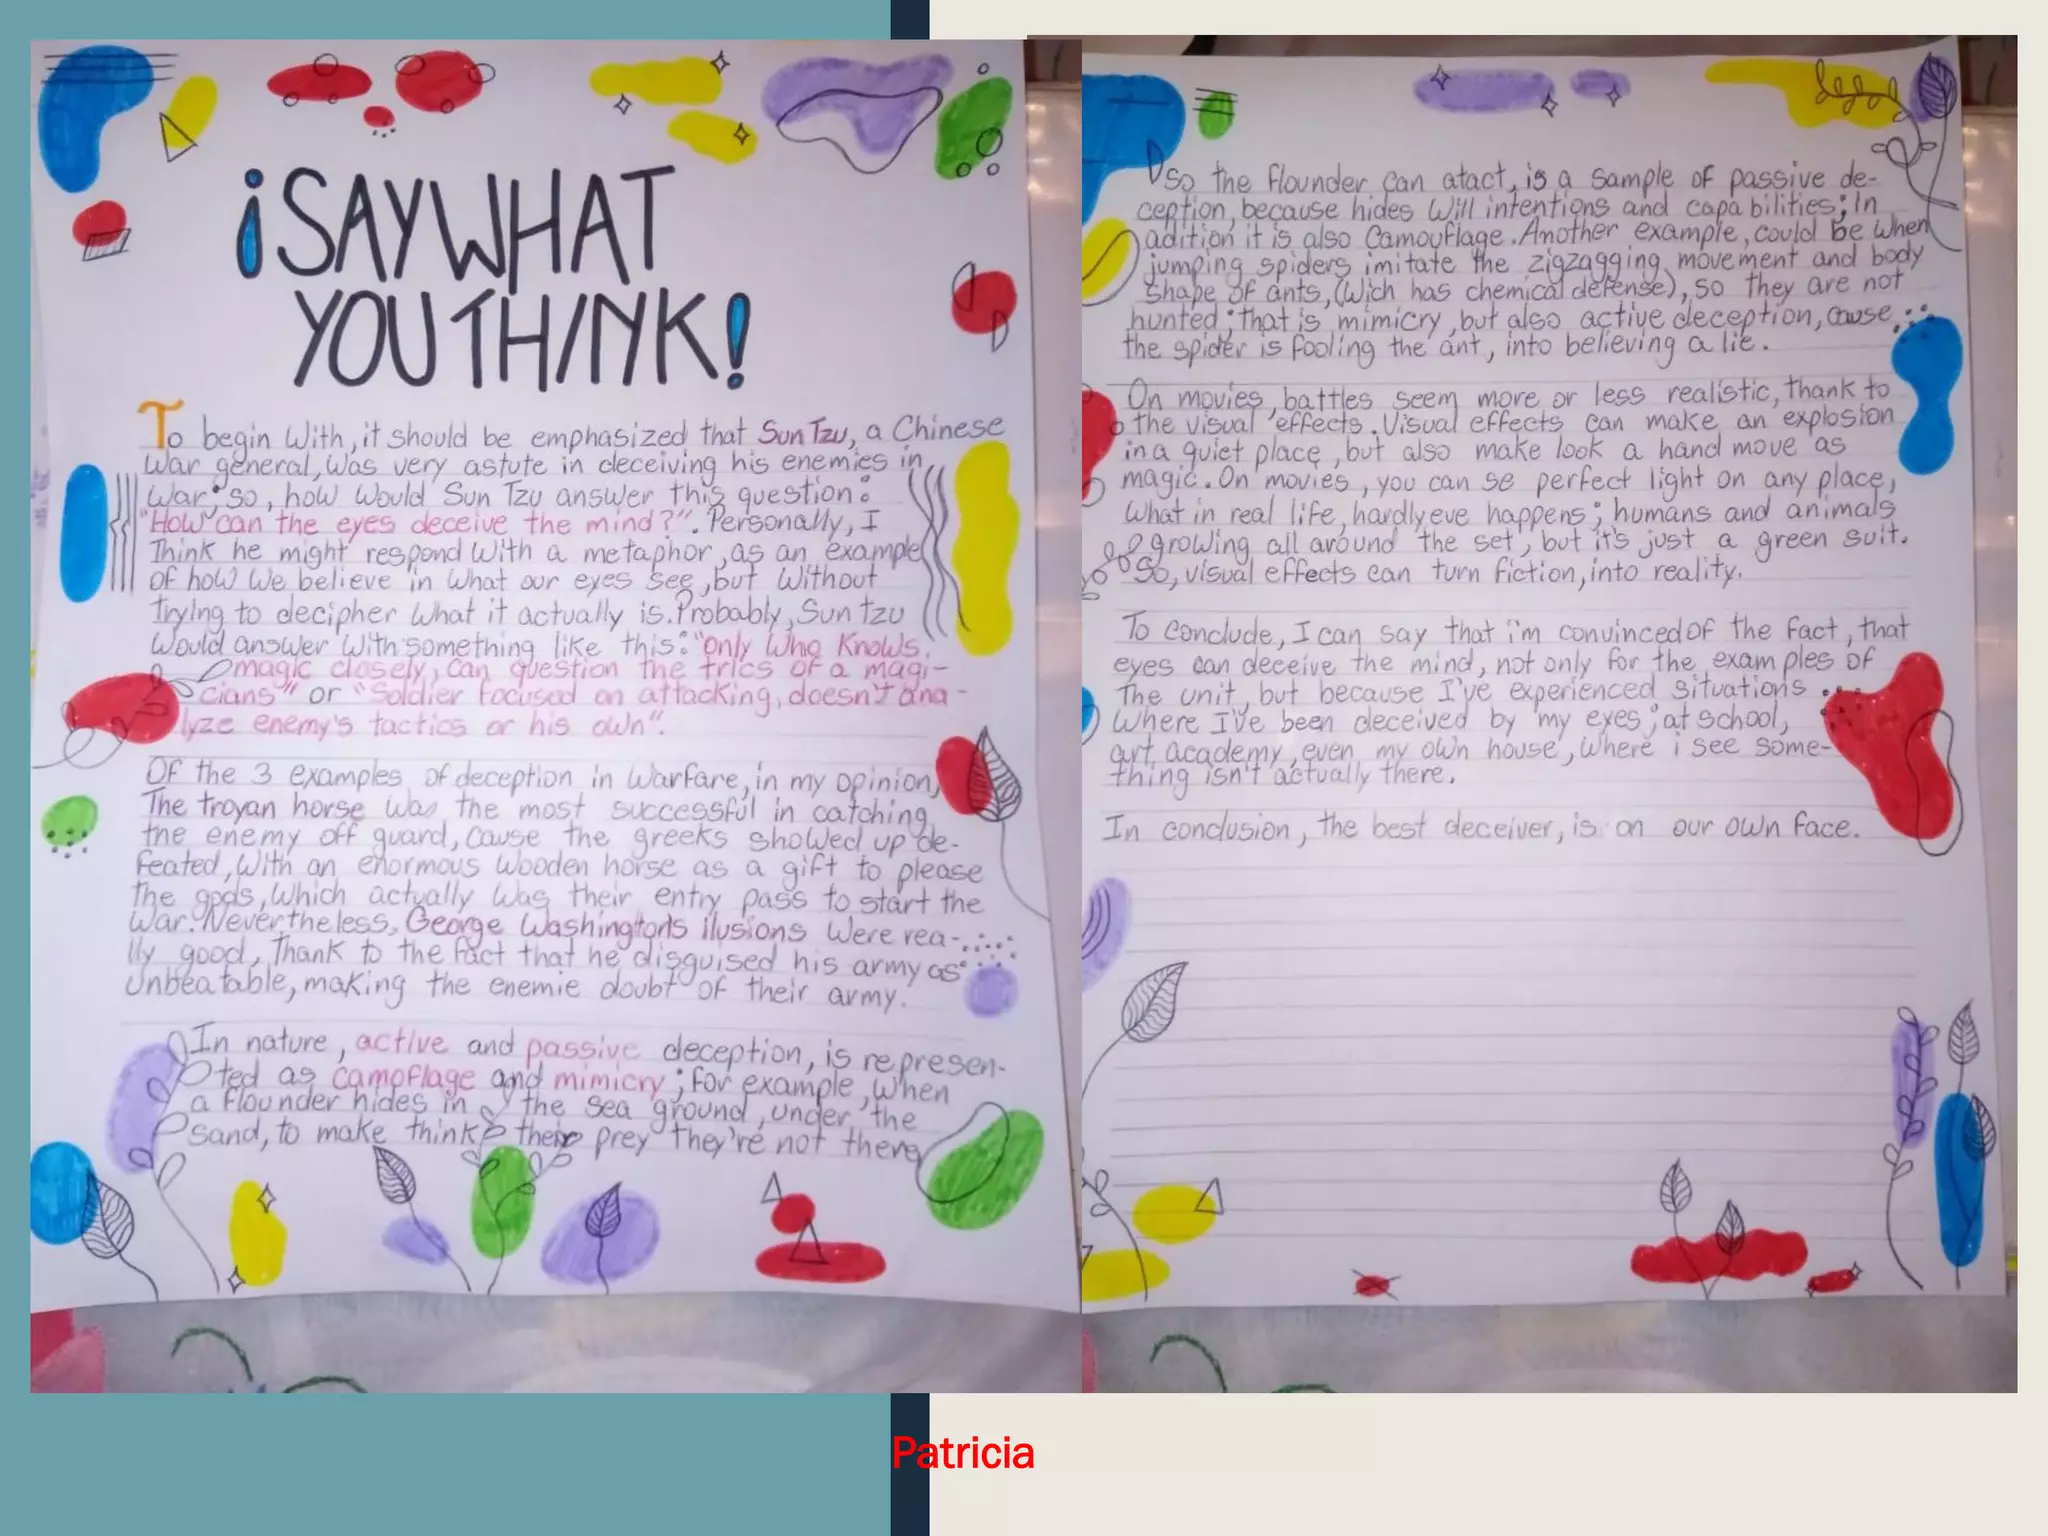 ¡SAY WHAT
YOU THINK!
To begin with, it should be emphasized that Sun Tzu, a Chinese
war general, was very astute in deceiving his enemies in
war; so, how would Sun Tzu answer this question:
"How can the eyes deceive the mind?". Personally, I
Think he might respond with a metaphor, as an example
of how we believe in what our eyes see, but without
trying to decipher what it actually is. Probably, Sun tzu
would answer with something like this: "only who knows,
magic closely, can question the trics of a magi-
cians" or "Soldier focused on attacking, doesn't ana-
lyze enemy's tactics or his own".
Of the 3 examples of deception in warfare, in my opinion,
The troyan horse was the most successful in catching
the enemy off guard, cause the greeks showed up de-
feated, with an enormous wooden horse as a gift to please
the gods, which actually was their entry pass to start the
war. Nevertheless, George Washington's ilusions were rea-
lly good, Thank to the fact that he disguised his army as
unbeatable, making the enemie doubt of their army.
In nature, active and passive deception, is represen-
ted as camoflage and mimicry; for example, when
a flounder hides in the sea ground, under the
sand, to make think their prey they're not there
so the flounder can atact, is a sample of passive de-
ception, because hides will intentions and capabilities; In
adition it is also Camouflage. Another example, could be when
jumping spiders imitate the zigzagging movement and body
shape of ants, (wich has chemical defense), so they are not
hunted; that is mimicry, but also active deception, cause
the spider is fooling the ant, into believing a lie.
On movies, battles seem more or less realistic, thank to
the visual effects. Visual effects can make an explosion
in a quiet place, but also make look a hand move as
magic. On movies, you can se perfect light on any place,
what in real life, hardly eve happens; humans and animals
growing all around the set, but it's just a green suit.
So, visual effects can turn fiction, into reality.
To conclude, I can say that i'm convinced of the fact, that
eyes can deceive the mind, not only for the examples of
The unit, but because I've experienced situations
where I've been deceived by my eyes; at school,
art academy, even my own house, where i see some-
thing isn't actually there.
In conclusion, the best deceiver, is on our own face.
Patricia